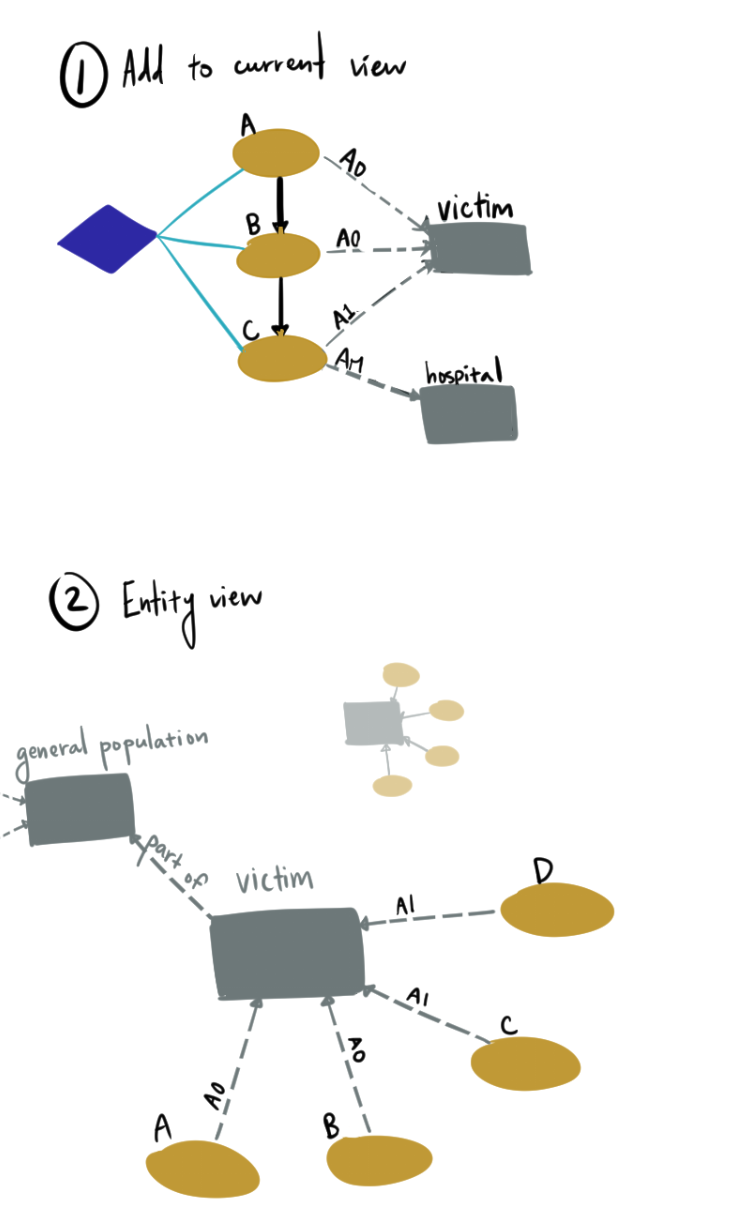 1 Add to current view
A
A0
victim
B
A0
C
A1
AM
hospital
2 Entity view
general population
part of
victim
D
A1
A1
C
A0
A0
A
B